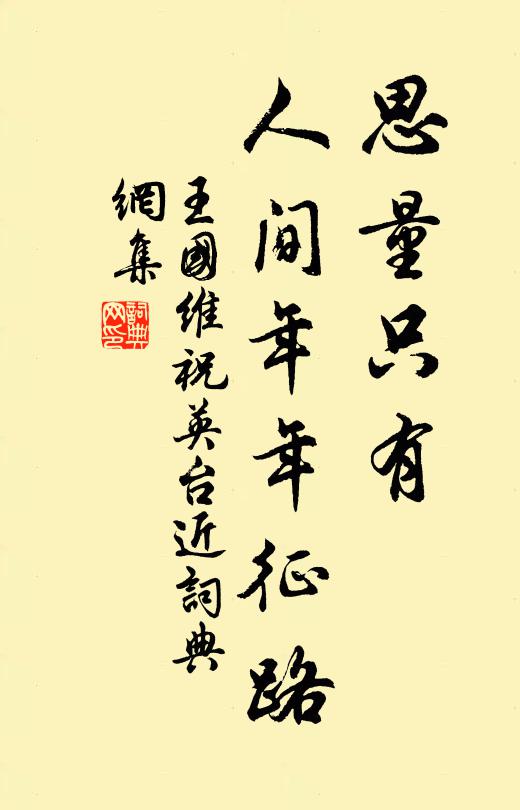 思量只有
人间年年征路
王國维祝英台近詞典
網集
詞典
网印